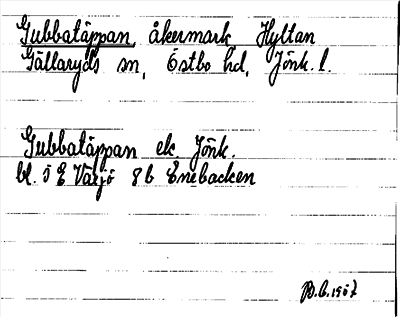 Gubbatäppan, åkermark Hyltan
Gällaryds sn, Östbo hd, Jönk. l.
Gubbatäppan ek. Jönk.
bl. 5 E Växjö 8 b Enebacken
B.C. 1967